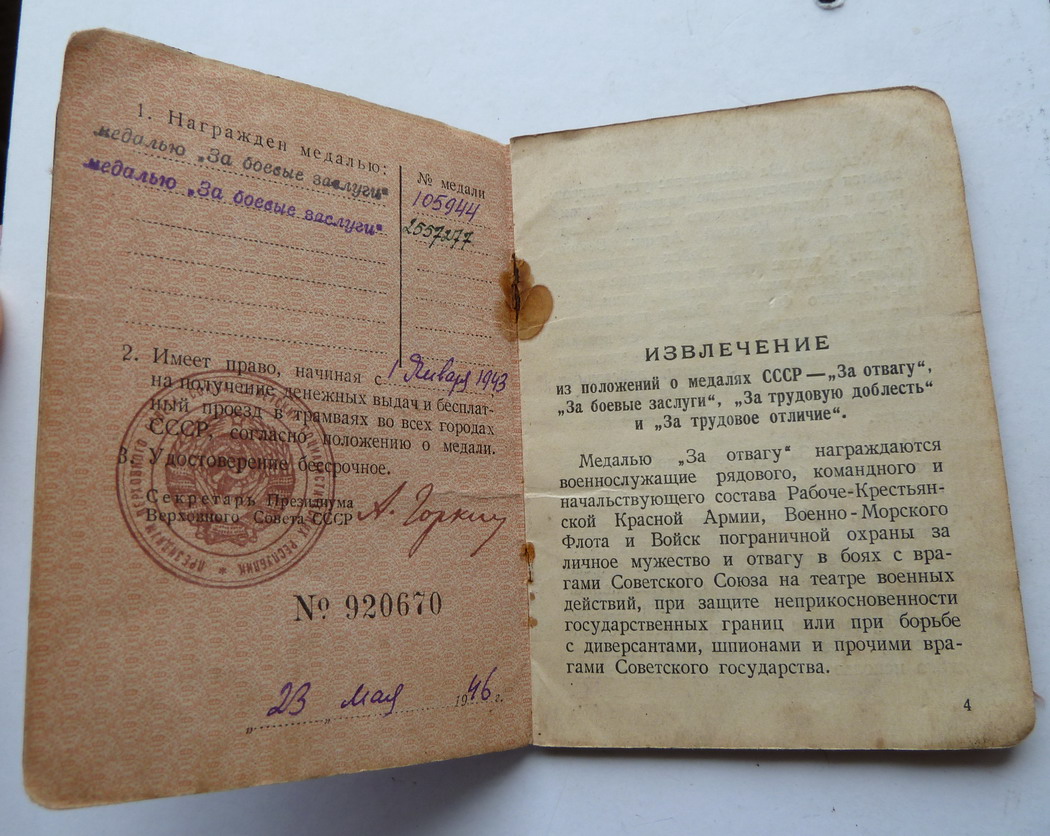 1. Награжден медалью:
медалью „За боевые заслуги“
медалью „За боевые заслуги“
№ медали
105944
2557277
2. Имеет право, начиная с 1 Января 1943
на получение денежных выдач и бесплат-
ный проезд в трамваях во всех городах
СССР, согласно положению о медали.
3. Удостоверение бессрочное.
Секретарь Президиума
Верховного Совета СССР А. Горкин
ПРЕЗИДИУМ ВЕРХОВНОГО РЕСПУБЛИК
№ 920670
„23„ мая 1946 г.
ИЗВЛЕЧЕНИЕ
из положений о медалях СССР—„За отвагу“,
„За боевые заслуги“, „За трудовую доблесть“
и „За трудовое отличие“.
Медалью „За отвагу“ награждаются
военнослужащие рядового, командного и
начальствующего состава Рабоче-Крестьян-
ской Красной Армии, Военно-Морского
Флота и Войск пограничной охраны за
личное мужество и отвагу в боях с вра-
гами Советского Союза на театре военных
действий, при защите неприкосновенности
государственных границ или при борьбе
с диверсантами, шпионами и прочими вра-
гами Советского государства.
4